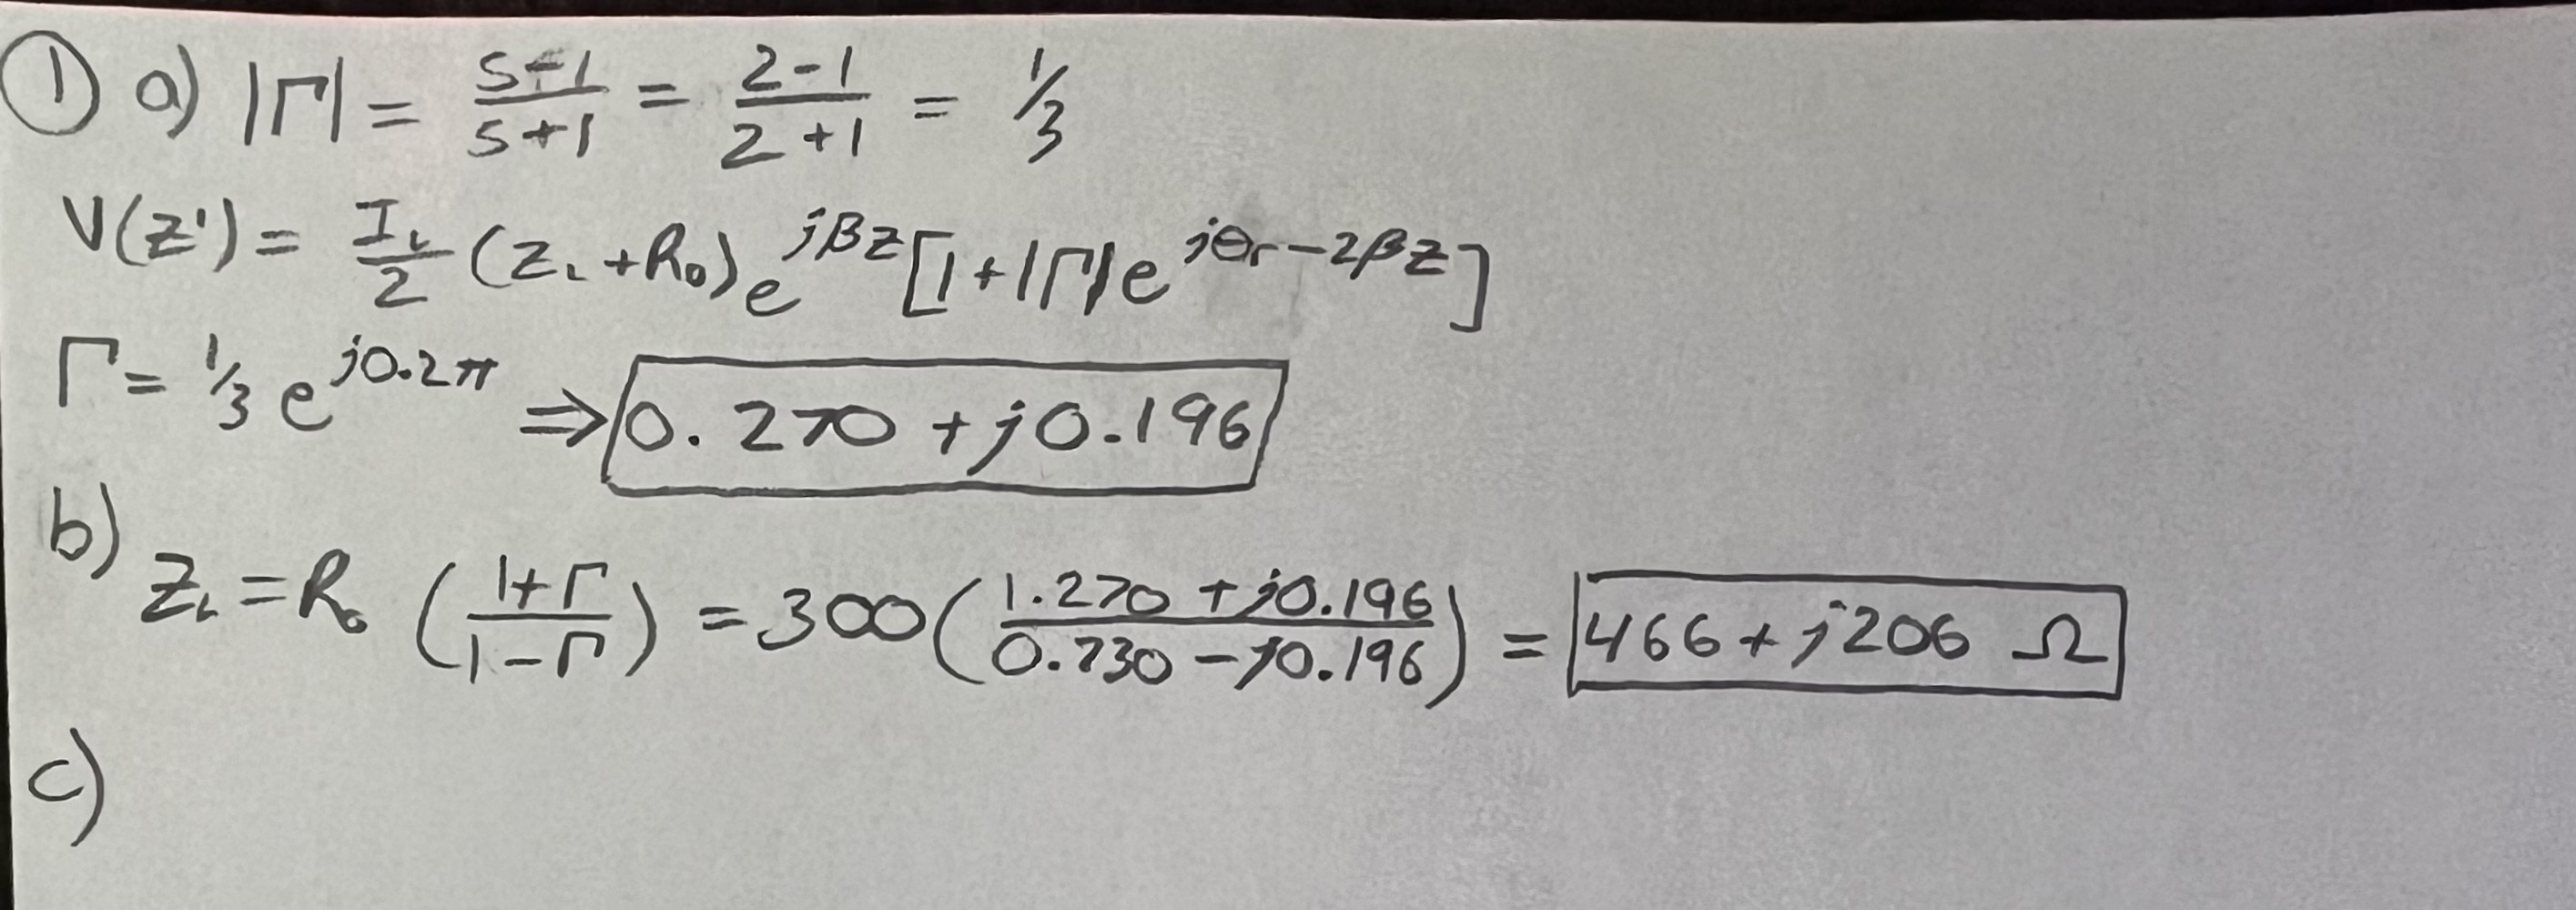 ① a) |Γ| = (S-1)/(S+1) = (2-1)/(2+1) = 1/3
V(z') = I_L/2 (Z_L + R_0) e^{jβz} [1+|Γ|e^{jθ_Γ-2βz}]
Γ = 1/3 e^{j0.2π} ⇒ 0.270 + j0.196
b) Z_L = R_0 ((1+Γ)/(1-Γ)) = 300 ((1.270 + j0.196)/(0.730 - j0.196)) = 466 + j206 Ω
c)